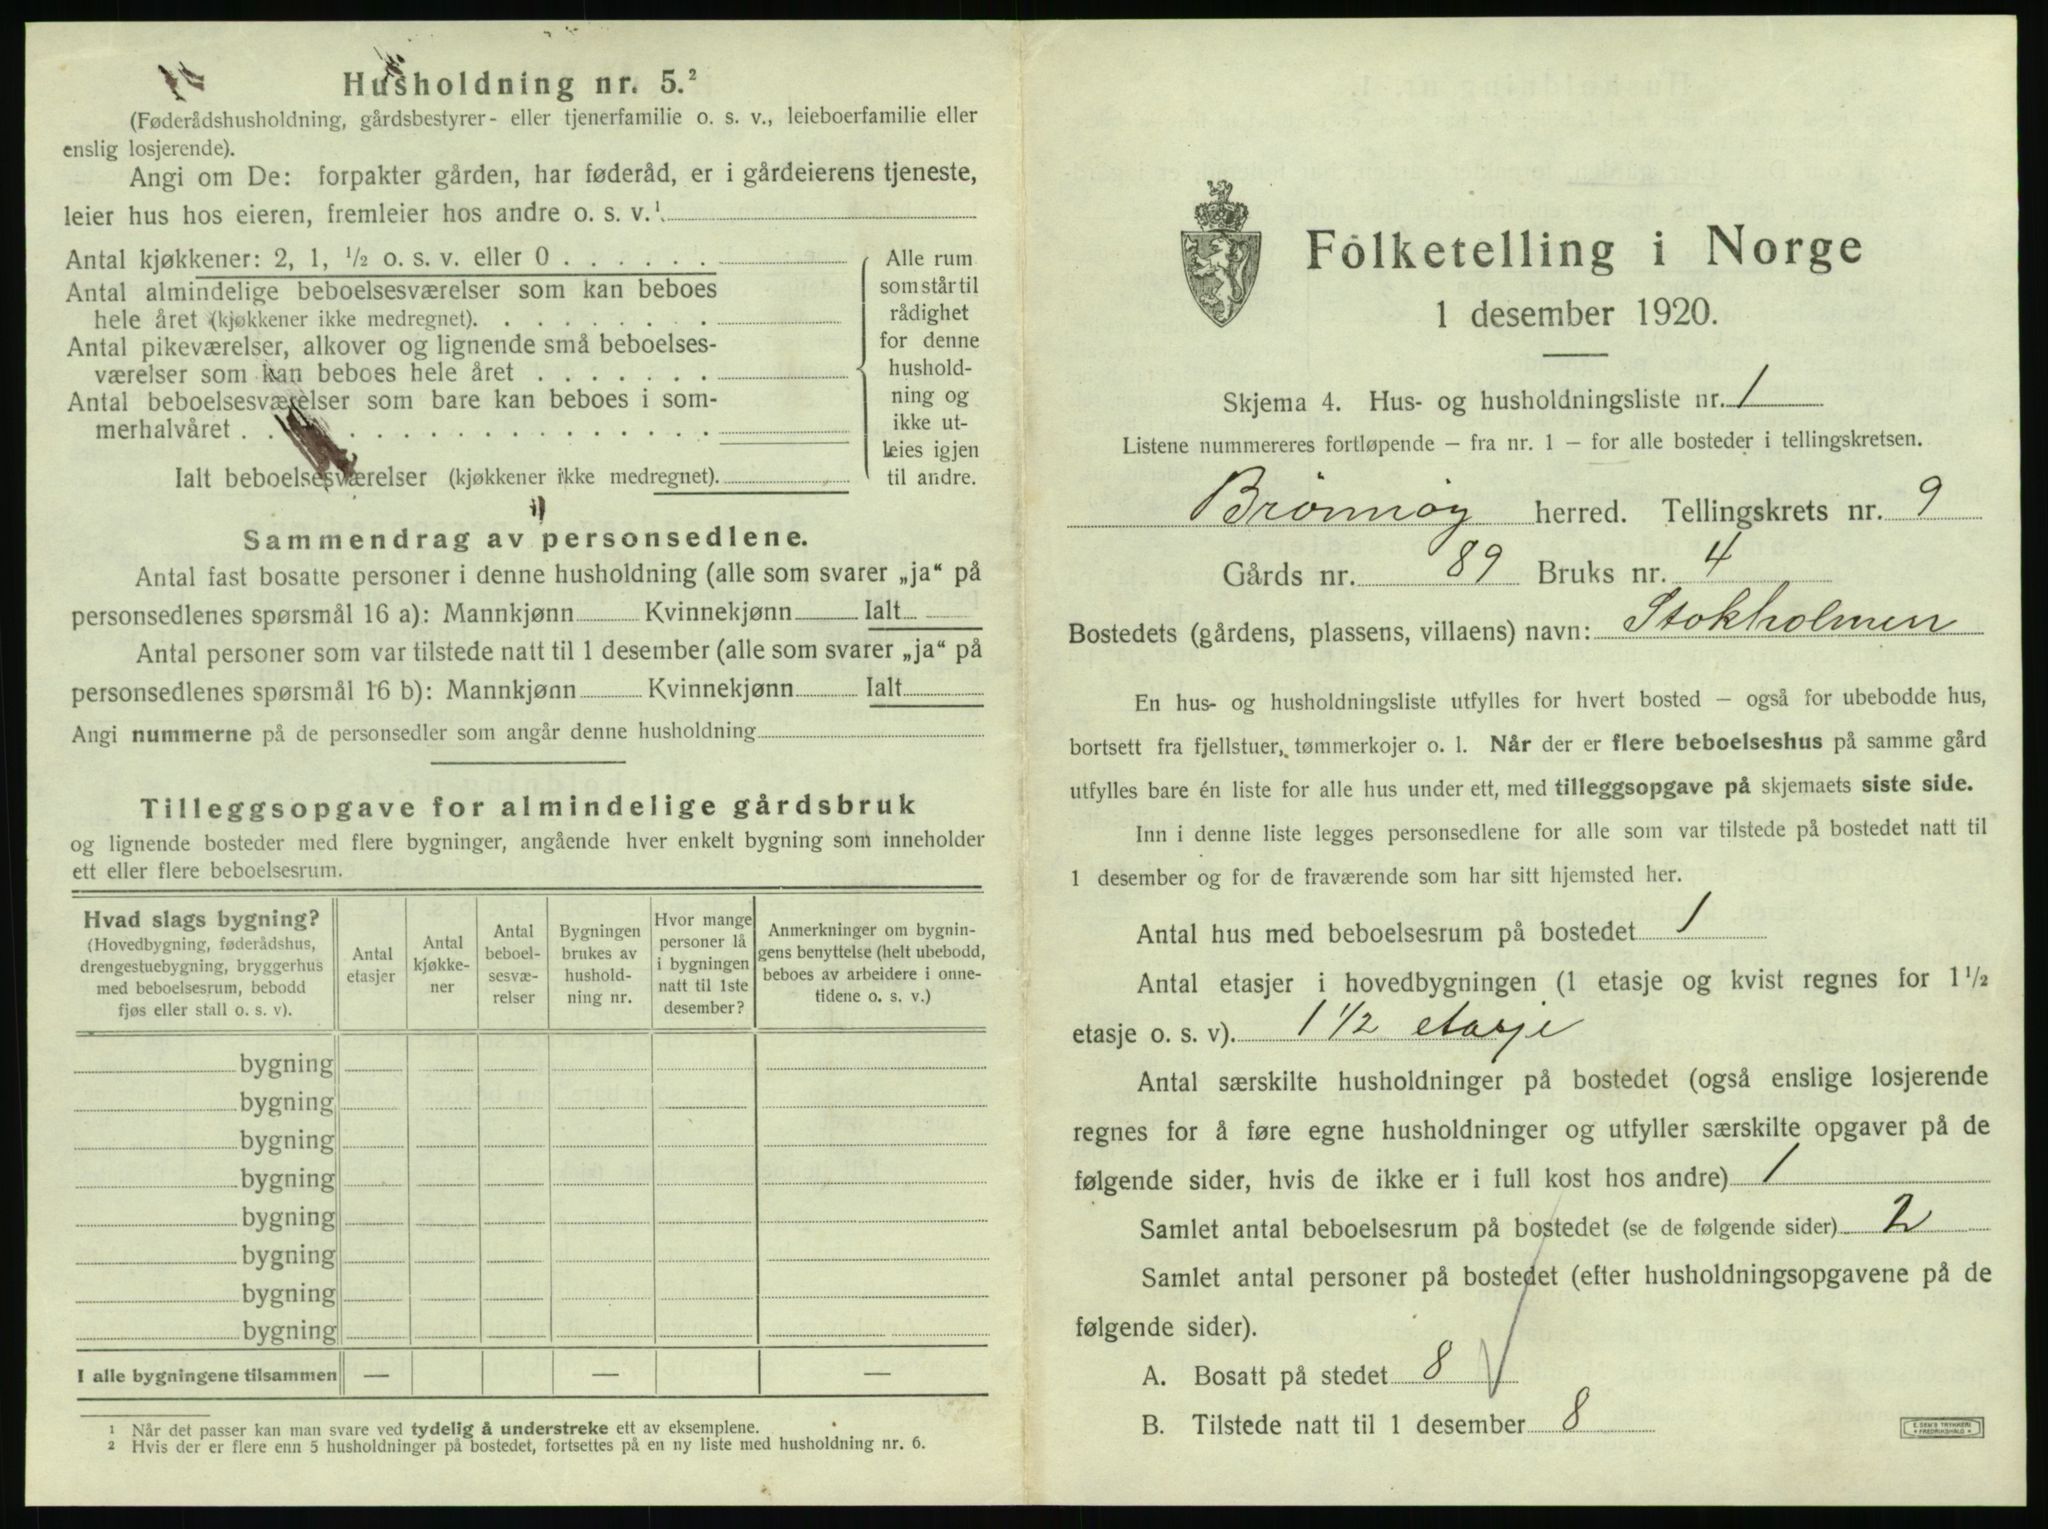 Husholdning nr. 5.²
(Føderådshusholdning, gårdsbestyrer- eller tjenerfamilie o. s. v., leieboerfamilie eller
enslig losjerende).
Angi om De: forpakter gården, har føderåd, er i gårdeierens tjeneste,
leier hus hos eieren, fremleier hos andre o. s. v.¹
Antal kjøkkener: 2, 1, ½ o. s. v. eller 0 . . . . . .
Antal almindelige beboelsesværelser som kan beboes
hele året (kjøkkener ikke medregnet). . . . . . . .
Antal pikeværelser, alkover og lignende små beboelses-
værelser som kan beboes hele året . . . . . . .
Antal beboelsesværelser som bare kan beboes i som-
merhalvåret . . . . . . . . . . . . . . . . . .
Ialt beboelsesværelser (kjøkkener ikke medregnet).
Alle rum
som står til
rådighet
for denne
hushold-
ning og
ikke ut-
leies igjen
til andre.
Sammendrag av personsedlene.
Antal fast bosatte personer i denne husholdning (alle som svarer „ja“ på
personsedlenes spørsmål 16 a): Mannkjønn Kvinnekjønn Ialt
Antal personer som var tilstede natt til 1 desember (alle som svarer „ja“ på
personsedlenes spørsmål 16 b): Mannkjønn Kvinnekjønn Ialt
Angi nummerne på de personsedler som angår denne husholdning
Tilleggsopgave for almindelige gårdsbruk
og lignende bosteder med flere bygninger, angående hver enkelt bygning som inneholder
ett eller flere beboelsesrum.
Hvad slags bygning?
(Hovedbygning, føderådshus,
drengestuebygning, bryggerhus
med beboelsesrum, bebodd
fjøs eller stall o. s. v).
Antal
etasjer
Antal
kjøkke-
ner
Antal
beboel-
sesvæ-
relser
Bygningen
brukes av
hushold-
ning nr.
Hvor mange
personer lå
i bygningen
natt til 1ste
desember?
Anmerkninger om bygnin-
gens benyttelse (helt ubebodd,
beboes av arbeidere i onne-
tidene o. s. v.)
bygning
bygning
bygning
bygning
bygning
bygning
bygning
bygning
I alle bygningene tilsammen — — —
¹ Når det passer kan man svare ved tydelig å understreke ett av eksemplene.
² Hvis der er flere enn 5 husholdninger på bostedet, fortsettes på en ny liste med husholdning nr. 6.
Folketelling i Norge
1 desember 1920.
Skjema 4. Hus- og husholdningsliste nr. 1
Listene nummereres fortløpende — fra nr. 1 — for alle bosteder i tellingskretsen.
Brønnøy herred. Tellingskrets nr. 9
Gårds nr. 89 Bruks nr. 4
Bostedets (gårdens, plassens, villaens) navn: Stokholmen
En hus- og husholdningsliste utfylles for hvert bosted — også for ubebodde hus,
bortsett fra fjellstuer, tømmerkojer o. l. Når der er flere beboelseshus på samme gård
utfylles bare én liste for alle hus under ett, med tilleggsopgave på skjemaets siste side.
Inn i denne liste legges personsedlene for alle som var tilstede på bostedet natt til
1 desember og for de fraværende som har sitt hjemsted her.
Antal hus med beboelsesrum på bostedet 1
Antal etasjer i hovedbygningen (1 etasje og kvist regnes for 1 ½
etasje o. s. v). 1 ½ etasje
Antal særskilte husholdninger på bostedet (også enslige losjerende
regnes for å føre egne husholdninger og utfyller særskilte opgaver på de
følgende sider, hvis de ikke er i full kost hos andre) 1
Samlet antal beboelsesrum på bostedet (se de følgende sider) 2
Samlet antal personer på bostedet (efter husholdningsopgavene på de
følgende sider).
A. Bosatt på stedet 8
B. Tilstede natt til 1 desember 8
E. SEM'S TRYKKERI
FREDRIKSHALD